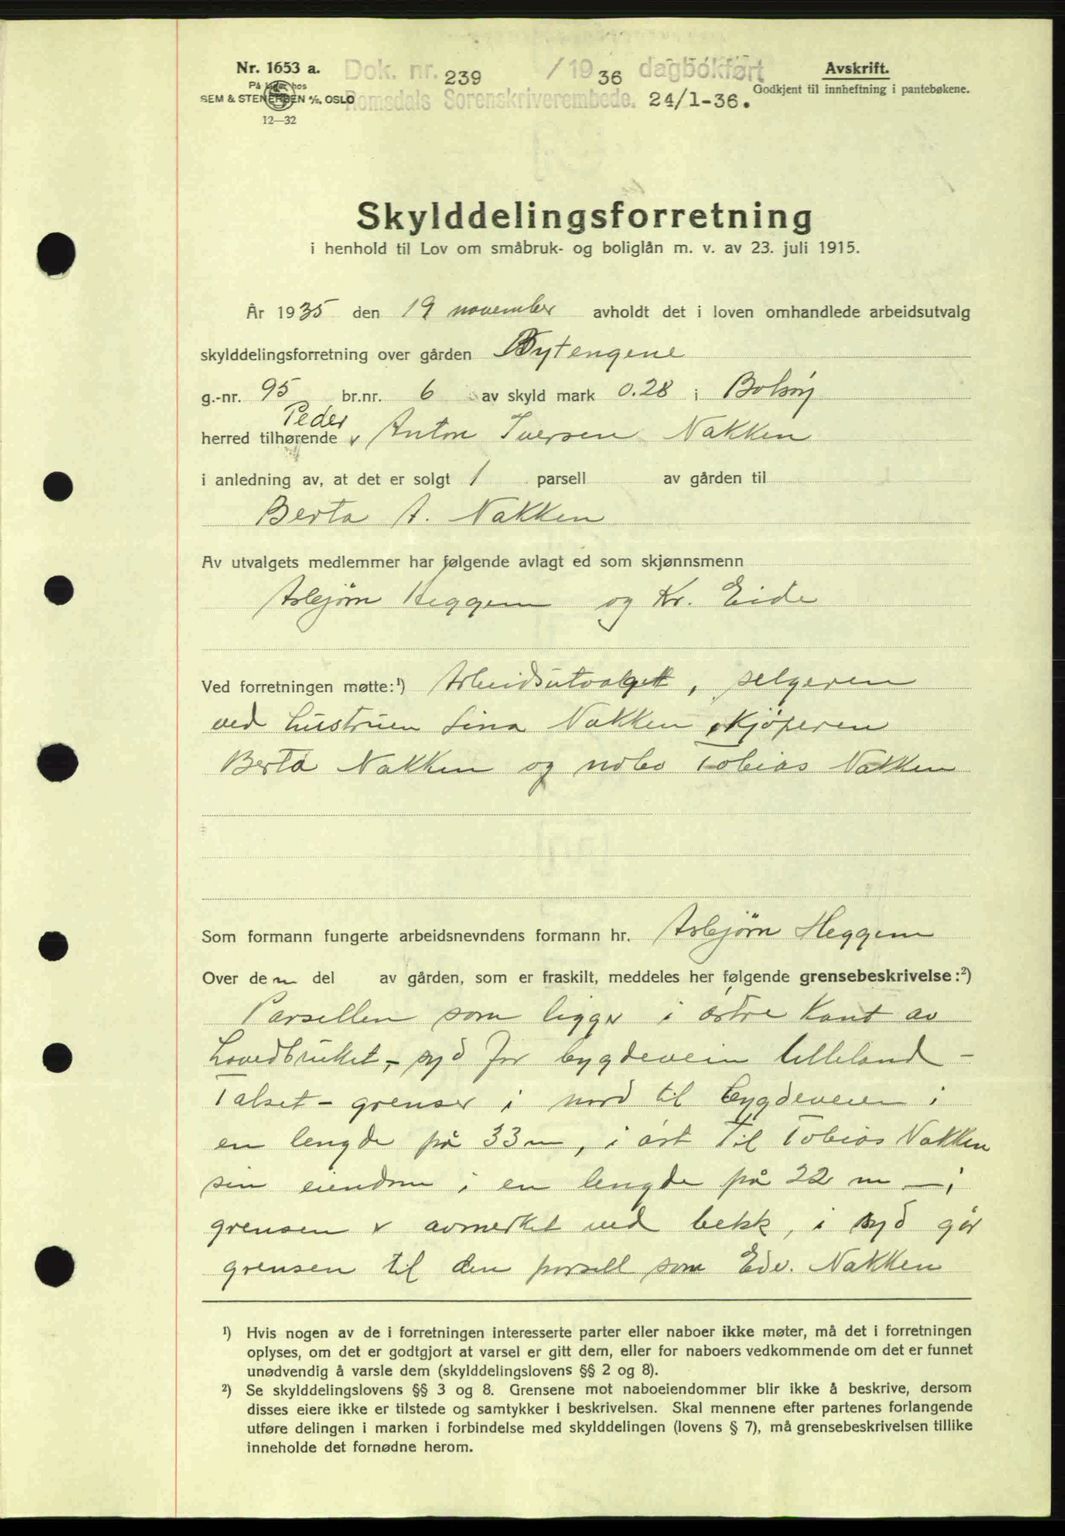 Nr. 1653 a.
På lager hos
SEM & STENERSEN A/S, OSLO
12—32
Dok. nr. 239 /19 36 dagbokført
Romsdals Sorenskriverembede. 24/1-36.
Avskrift.
Godkjent til innheftning i pantebøkene.
Skylddelingsforretning
i henhold til Lov om småbruk- og boliglån m. v. av 23. juli 1915.
År 1935 den 19 november avholdt det i loven omhandlede arbeidsutvalg
skylddelingsforretning over gården Bytengene
g.-nr. 95 br.nr. 6 av skyld mark 0.28 i Bolsøy
herred tilhørende Peder Anton Iversen Nakken
i anledning av, at det er solgt 1 parsell av gården til
Berta A. Nakken
Av utvalgets medlemmer har følgende avlagt ed som skjønnsmenn
Asbjørn Heggem og Kr. Eide
Ved forretningen møtte:¹) Arbeidsutvalget, selgeren
ved hustruen Lina Nakken, kjøperen
Berta Nakken og nabo Tobias Nakken
Som formann fungerte arbeidsnevndens formann hr. Asbjørn Heggem
Over den del av gården, som er fraskilt, meddeles her følgende grensebeskrivelse:²)
Parsellen som ligger i østre kant av
hovedbruket, - syd for bygdevein Lilleland -
Talset - grenser i nord til bygdeveien i
en lengde på 33 m, i øst til Tobias Nakken
sin eiendom i en lengde på 22 m — i
grensen er avmerket ved bekk, i syd går
grensen til den parsell som Edv. Nakken
¹) Hvis nogen av de i forretningen interesserte parter eller naboer ikke møter, må det i forretningen
oplyses, om det er godtgjort at varsel er gitt dem, eller for naboers vedkommende om det er funnet
unødvendig å varsle dem (skylddelingslovens §§ 2 og 8).
²) Se skylddelingslovens §§ 3 og 8. Grensene mot naboeiendommer blir ikke å beskrive, dersom
disses eiere ikke er tilstede og samtykker i beskrivelsen. Skal mennene efter partenes forlangende
utføre delingen i marken i forbindelse med skylddelingen (lovens § 7), må grensebeskrivelsen tillike
inneholde det fornødne herom.